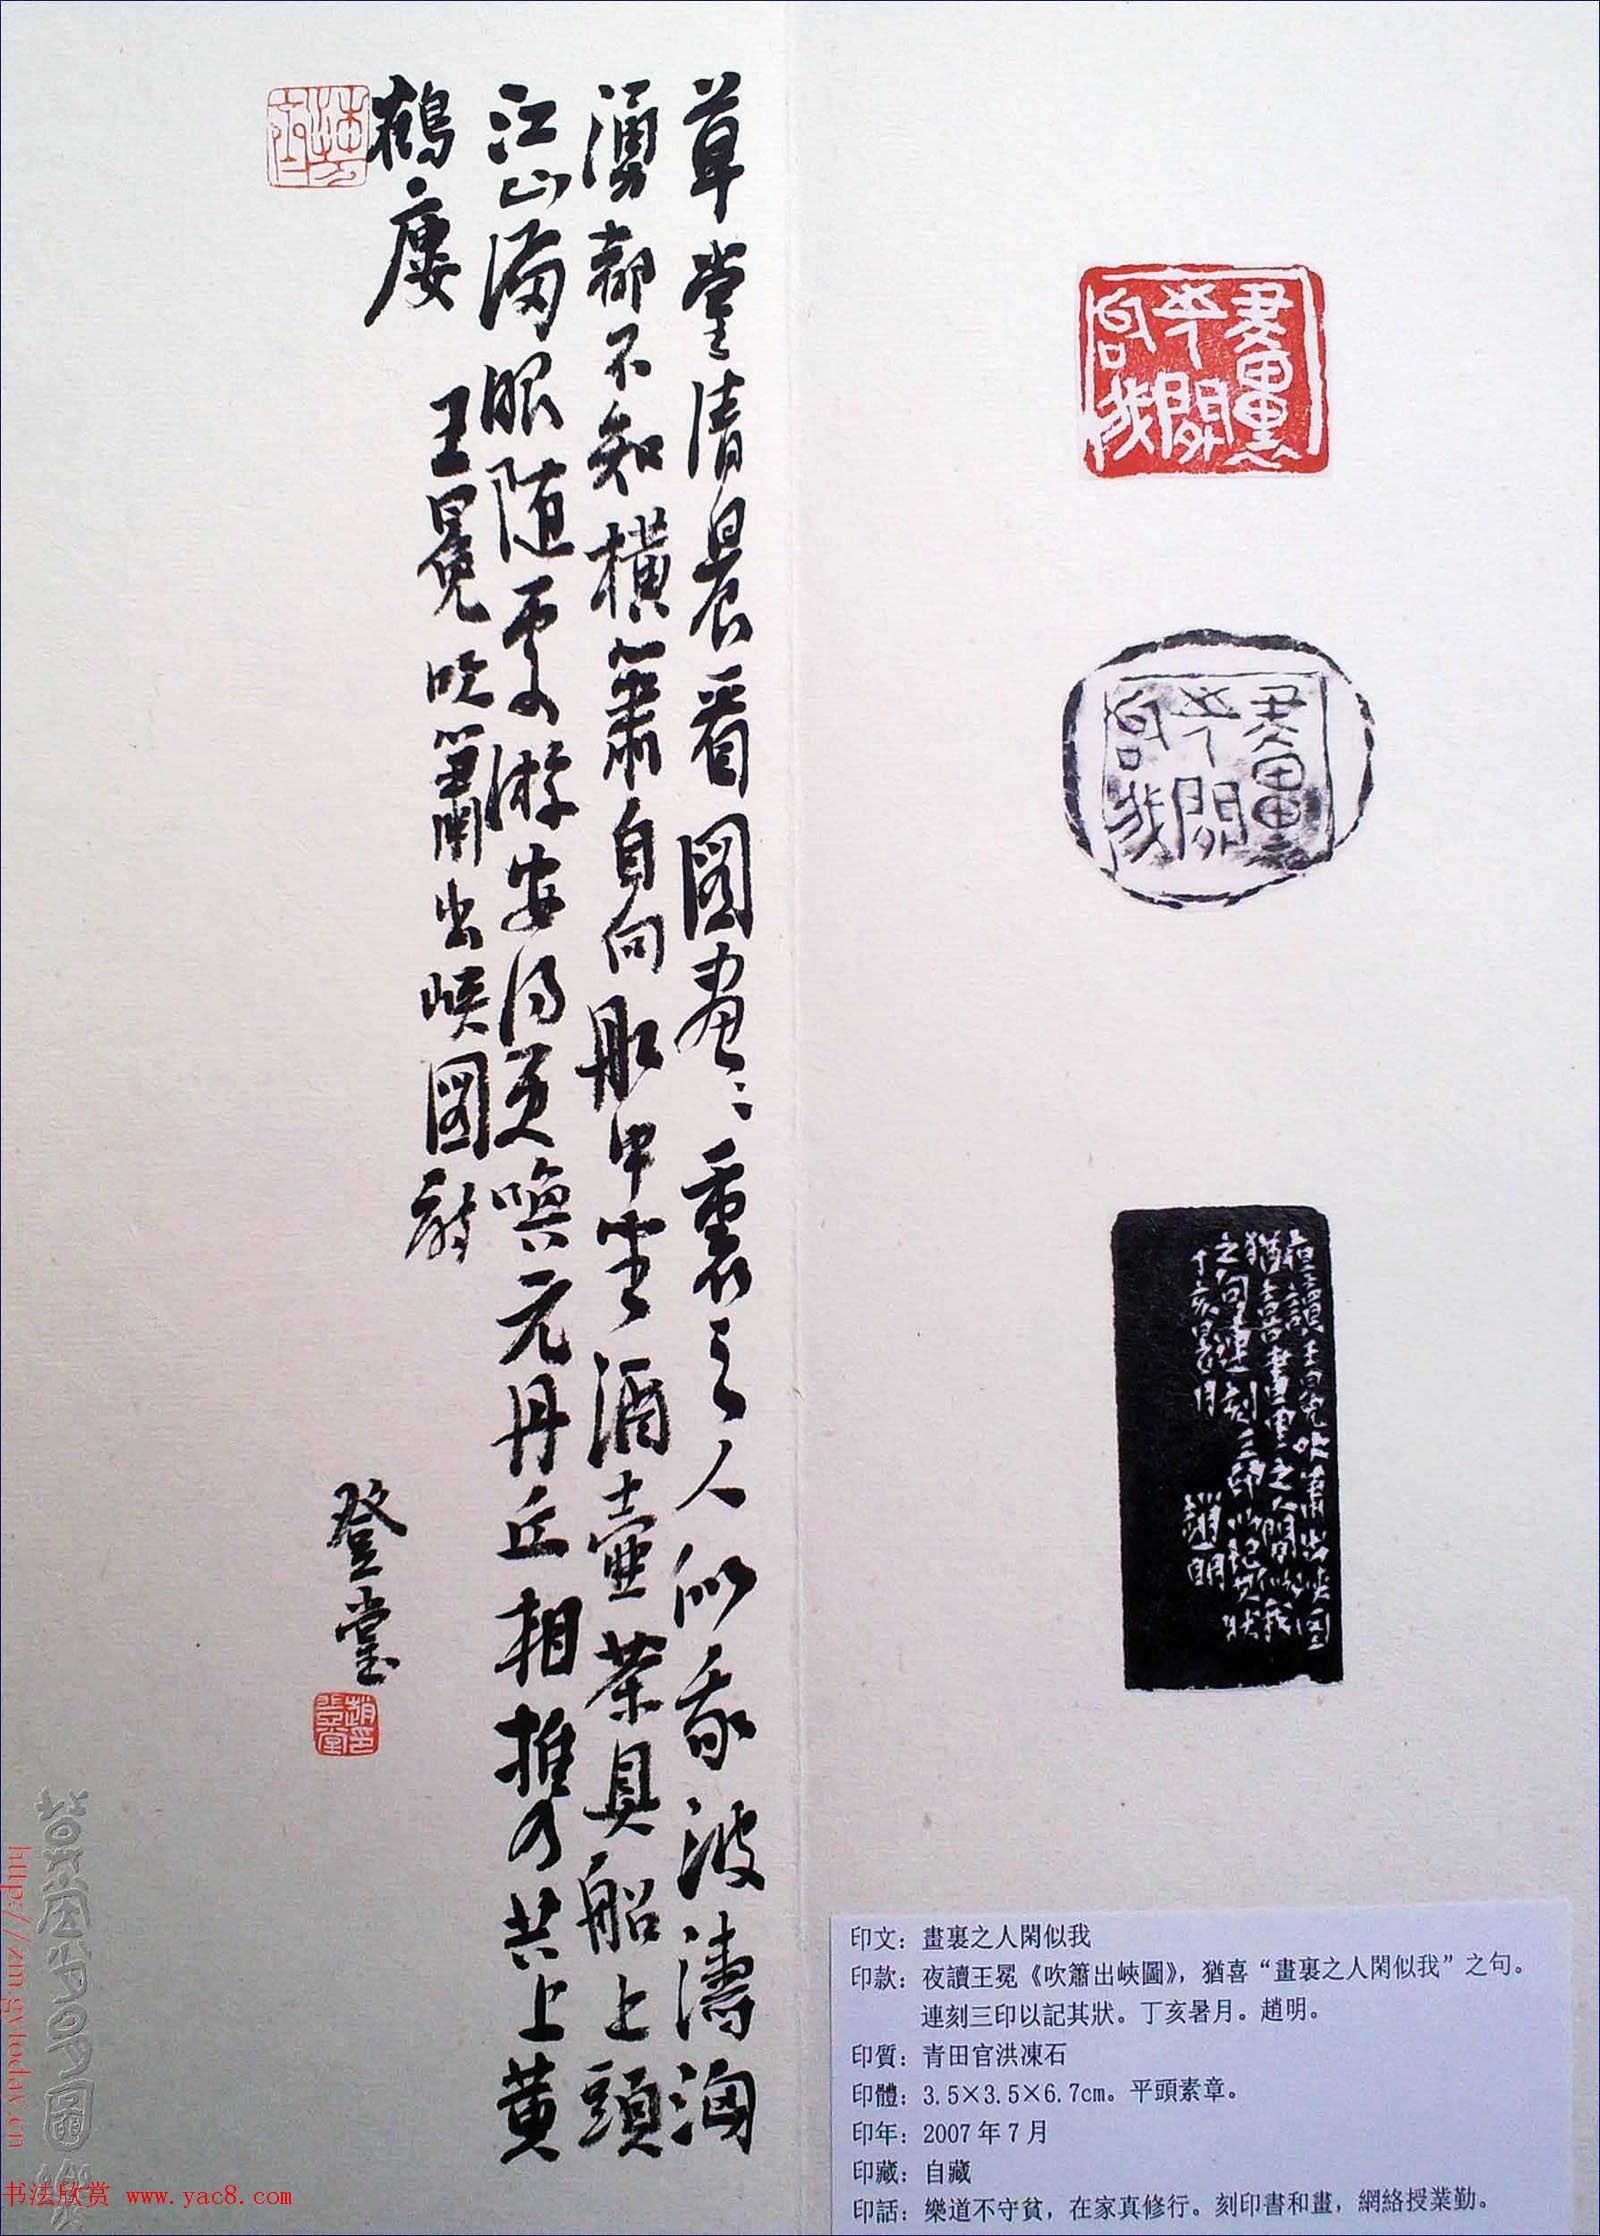 畫裏之人閑似我
畫裏之人閑似我
夜讀王冕吹簫出峽圖
猶喜畫裏之人閒似我
之句連刻三印以記其狀
丁亥暑月 趙明
印文：畫裏之人閑似我
印款：夜讀王冕《吹簫出峽圖》，猶喜“畫裏之人閑似我”之句。
連刻三印以記其狀。丁亥暑月。趙明。
印質：青田官洪凍石
印體：3.5×3.5×6.7cm。平頭素章。
印年：2007年7月
印藏：自藏
印話：樂道不守貧，在家真修行。刻印書和畫，網絡授業勤。
草堂清晨看圖畫〻裏之人似我波濤洶
湧都不知橫簫自向船中坐酒壺茶具船上頭
江山滿眼隨處游安得更喚元丹丘相携共上黃
鶴樓 王冕吹簫出峽圖詩
登堂
趙印登堂
http://zm.gytoday.cn
书法欣赏 www.yac8.com